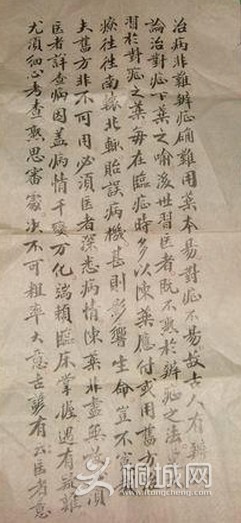 治病非難辨症確難用藥本易對症不易故古人有辨
論治對症下藥之喻後世習医者既不熟於辨症之法
習於對症之藥每在臨症時多以陳藥應付或用舊方
療往往南轅北轍貽誤病機甚則影響生命豈不
夫舊方非不可用必須医者深悉病情陳藥非盡無 須
医者詳查病因蓋病情千變万化端賴臨床掌握遇有疑難
尤須细心考查熟思審處决不可粗率大意古 有云医者意
桐城网
itongcheng.com